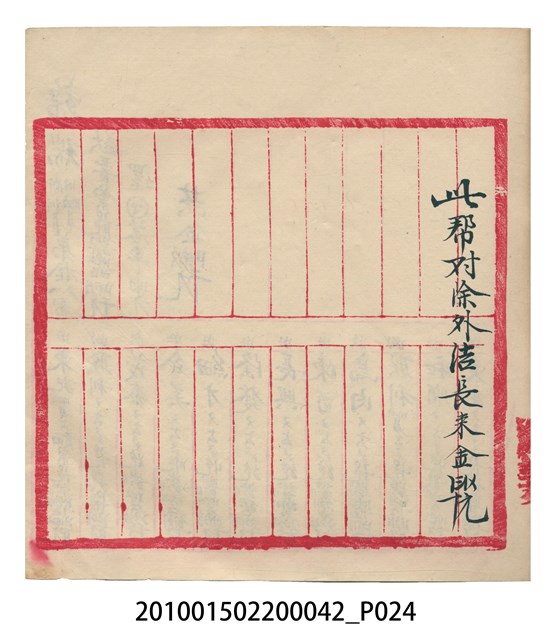 此帮对除外洁長来金
201001502200042_P024